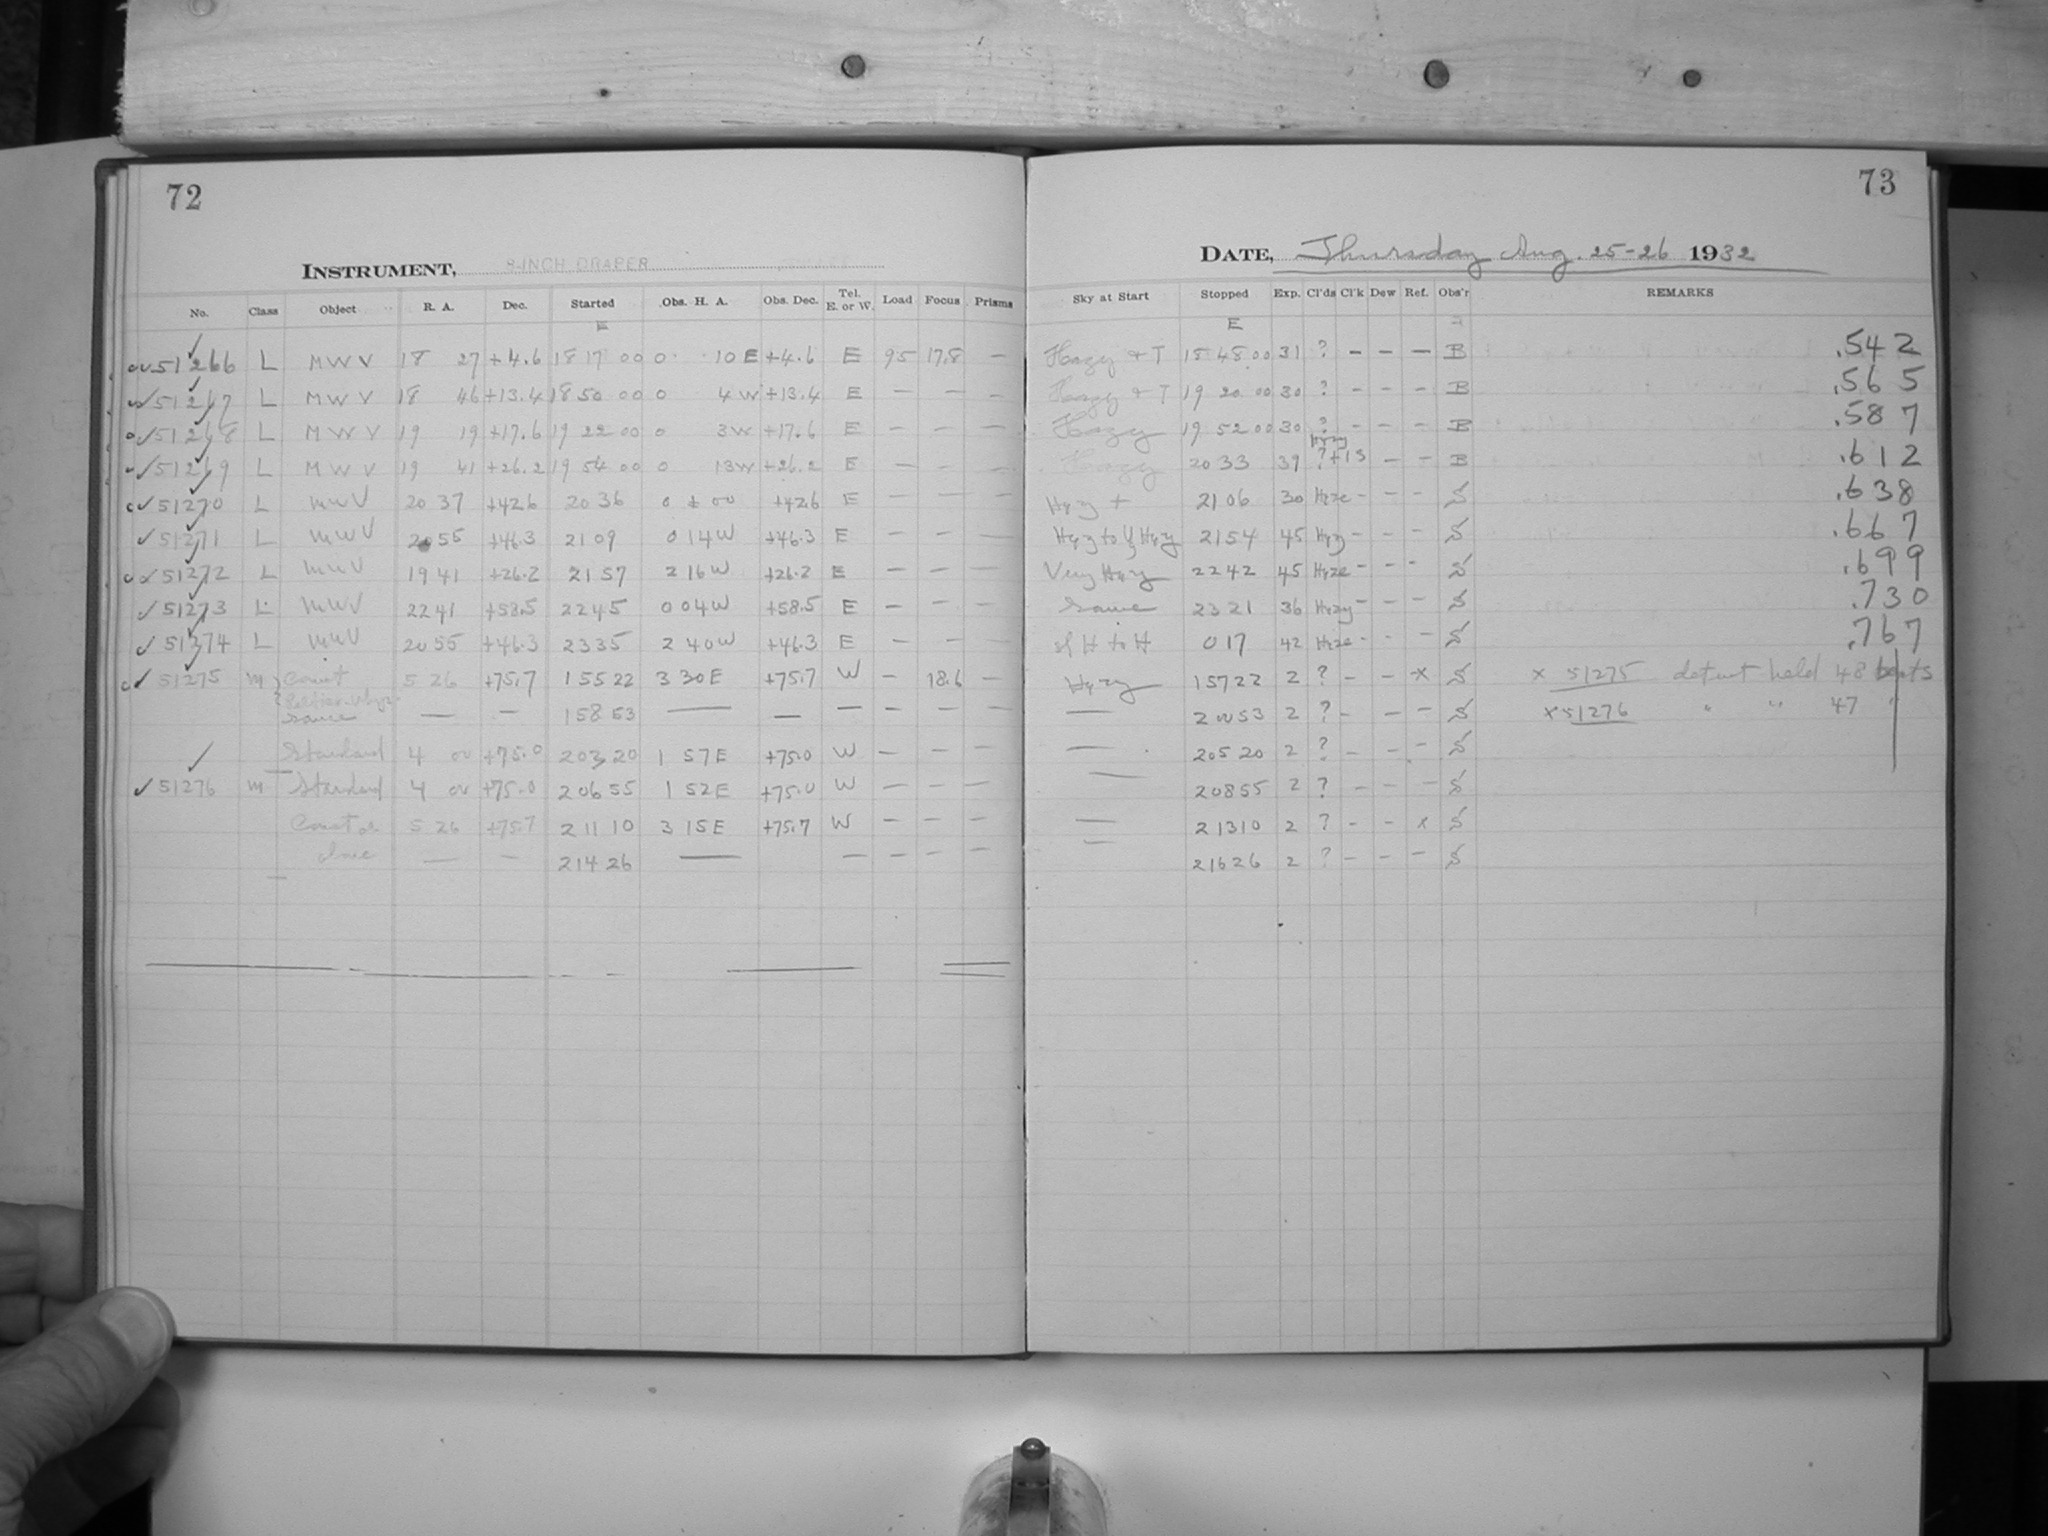 72
INSTRUMENT, 8-INCH DRAPER
No. Class Object R. A. Dec. Started Obs. H. A. Obs. Dec. Tel. E. or W. Load Focus Prisms
E
51266 L MWV 18 27 +4.6 18 17 00 0 10 E +4.6 E 95 17.8 —
51267 L MWV 18 46 +13.4 18 50 00 0 4 W +13.4 E — — —
51268 L MWV 19 19 +17.6 19 22 00 0 3 W +17.6 E — — —
51269 L MWV 19 41 +26.2 19 54 00 0 13 W +26.2 E — — —
51270 L MWV 20 37 +42.6 20 36 0 ± 00 +42.6 E — — —
51271 L MWV 20 55 +46.3 21 09 0 14 W +46.3 E — — —
51272 L MWV 19 41 +26.2 21 57 2 16 W +26.2 E — — —
51273 L MWV 22 41 +58.5 22 45 0 04 W +58.5 E — — —
51274 L MWV 20 55 +46.3 23 35 2 40 W +46.3 E — — —
51275 M Comet 5 26 +75.7 1 55 22 3 30 E +75.7 W — 18.6 —
Same — — 1 58 53 — — — — — —
Standard 4 00 +75.0 2 03 20 1 57 E +75.0 W — — —
51276 M Standard 4 00 +75.0 2 06 55 1 52 E +75.0 W — — —
Comet 5 26 +75.7 2 11 10 3 15 E +75.7 W — — —
— — 2 14 26 — — — — —
73
DATE, Thursday Aug. 25-26 1932
Sky at Start Stopped Exp. Cl'ds Cl'k Dew Ref. Obs'r REMARKS
E
Hazy + T 18 48 00 31 ? — — — B .542
Hazy + T 19 20 00 30 ? — — — B .565
Hazy 19 52 00 30 ? — — — B .587
Hazy 20 33 39 ?+1S — — B .612
Hazy + 21 06 30 Haze — — — S .638
21 54 45 Hazy — — — S .667
Very Hazy 22 42 45 Haze — — — S .699
Same 23 21 36 Hazy — — — S .730
sl H to H 0 17 42 Haze — — — S .767
Hazy 1 57 22 2 ? — — x S x 51275 detent held 48 beats
— 2 00 53 2 ? — — — S x 51276 " " 47 "
— 2 05 20 2 ? — — — S
— 2 08 55 2 ? — — — S
— 2 13 10 2 ? — — x S
— 2 16 26 2 ? — — — S